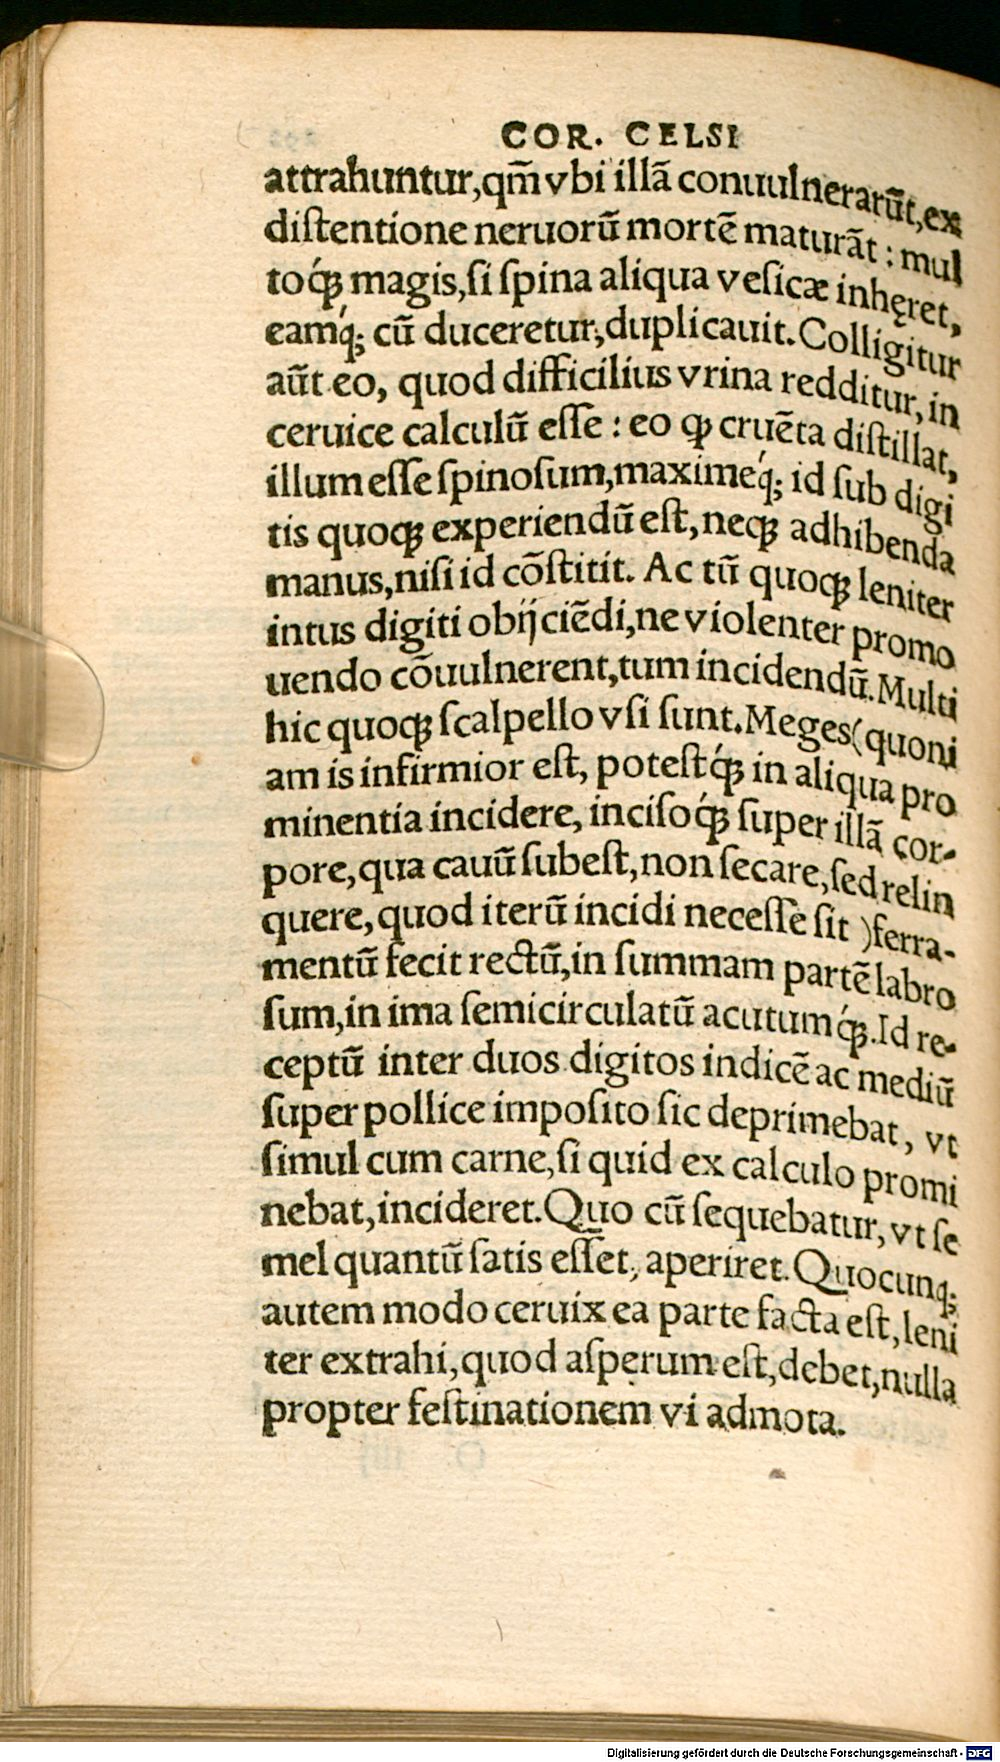 COR. CELSI
attrahuntur,qm̃ vbi illã conuulnerarũt,ex
diſtentione neruorũ mortẽ maturãt : mul
toq́ꝫ magis,ſi ſpina aliqua veſicæ inhęret,
eamq́; cũ duceretur,duplicauit.Colligitur
aũt eo, quod difficilius vrina redditur, in
ceruice calculũ eſſe : eo ꝙ cruẽta diſtillat,
illum eſſe ſpinoſum,maximeq́; id ſub digi
tis quoqꝫ experiendũ eſt, neqꝫ adhibenda
manus,niſi id cõſtitit. Ac tũ quoqꝫ leniter
intus digiti obijciẽdi,ne violenter promo
uendo cõuulnerent,tum incidendũ.Multi
hic quoqꝫ ſcalpello vſi ſunt.Meges(quoni
am is infirmior eſt, poteſtq́ꝫ in aliqua pro
minentia incidere, inciſoq́ꝫ ſuper illã cor-
pore,qua cauũ ſubeſt,non ſecare,ſed relin
quere,quod iterũ incidi neceſſe ſit )ferra-
mentũ fecit rectũ,in ſummam partẽ labro
ſum,in ima ſemicirculatũ acutumq́ꝫ.Id re-
ceptũ inter duos digitos indicẽ ac mediũ
ſuper pollice impoſito ſic deprimebat, vt
ſimul cum carne,ſi quid ex calculo promi
nebat,incideret.Quo cũ ſequebatur,vt ſe
mel quantũ ſatis eſſet, aperiret.Quocunq;
autem modo ceruix ea parte facta eſt,leni
ter extrahi,quod aſperum eſt,debet,nulla
propter feſtinationem vi admota.
Digitalisierung gefördert durch die Deutsche Forschungsgemeinschaft - DFG